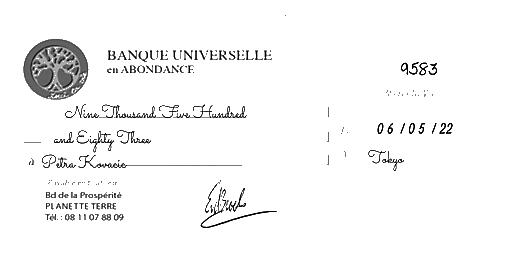 BANQUE UNIVERSELLE
en ABONDANCE
9583
Nine Thousand Five Hundred
and Eighty Three
06/05/22
à Petra Kovacic
Tokyo
Bd de la Prospérité
PLANETTE TERRE
Tél. : 08 11 07 88 09